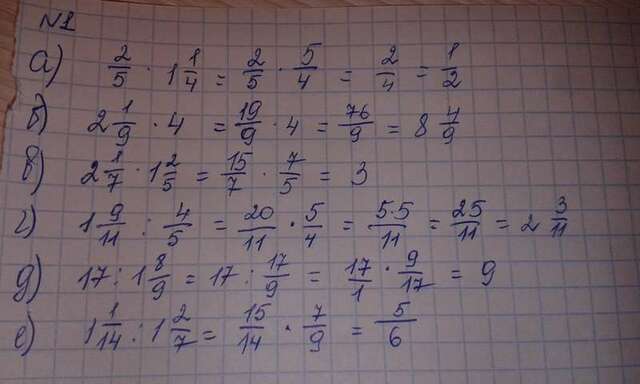 №1
а) 2/5 · 1 1/4 = 2/5 · 5/4 = 2/4 = 1/2
б) 2 1/9 · 4 = 19/9 · 4 = 76/9 = 8 4/9
в) 2 1/7 · 1 2/5 = 15/7 · 7/5 = 3
г) 1 9/11 : 4/5 = 20/11 · 5/4 = 5·5/11 = 25/11 = 2 3/11
д) 17 : 1 8/9 = 17 : 17/9 = 17/1 · 9/17 = 9
е) 1 1/14 : 1 2/7 = 15/14 · 7/9 = 5/6